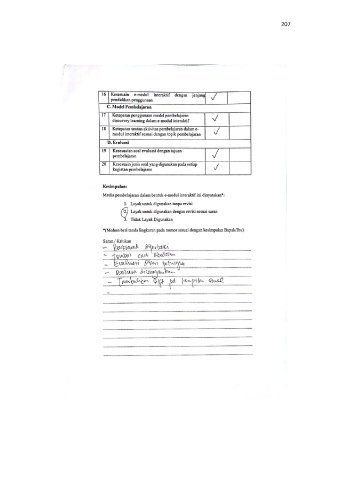 207
16 Kesesuaian e-modul interaktif dengan jenjang
pendidikan penggunaan
C. Model Pembelajaran
17 Ketepatan penggunaan model pembelajaran
discovery learning dalam e-modul interaktif
18 Ketepatan urutan aktivitas pembelajaran dalam e-
modul interaktif sesuai dengan topik pembelajaran
D. Evaluasi
19 Kesesuaian soal evaluasi dengan tujuan
pembelajaran
20 Kesesuaian jenis soal yang digunakan pada setiap
kegiatan pembelajaran
Kesimpulan:
Media pembelajaran dalam bentuk e-modul interaktif ini dinyatakan*:
1. Layak untuk digunakan tanpa revisi
2. Layak untuk digunakan dengan revisi sesuai saran
3. Tidak Layak Digunakan
*(Mohon beri tanda lingkaran pada nomor sesuai dengan kesimpulan Bapak/Ibu)
Saran / Kritikan
- Evaluasi
- Tambahkan